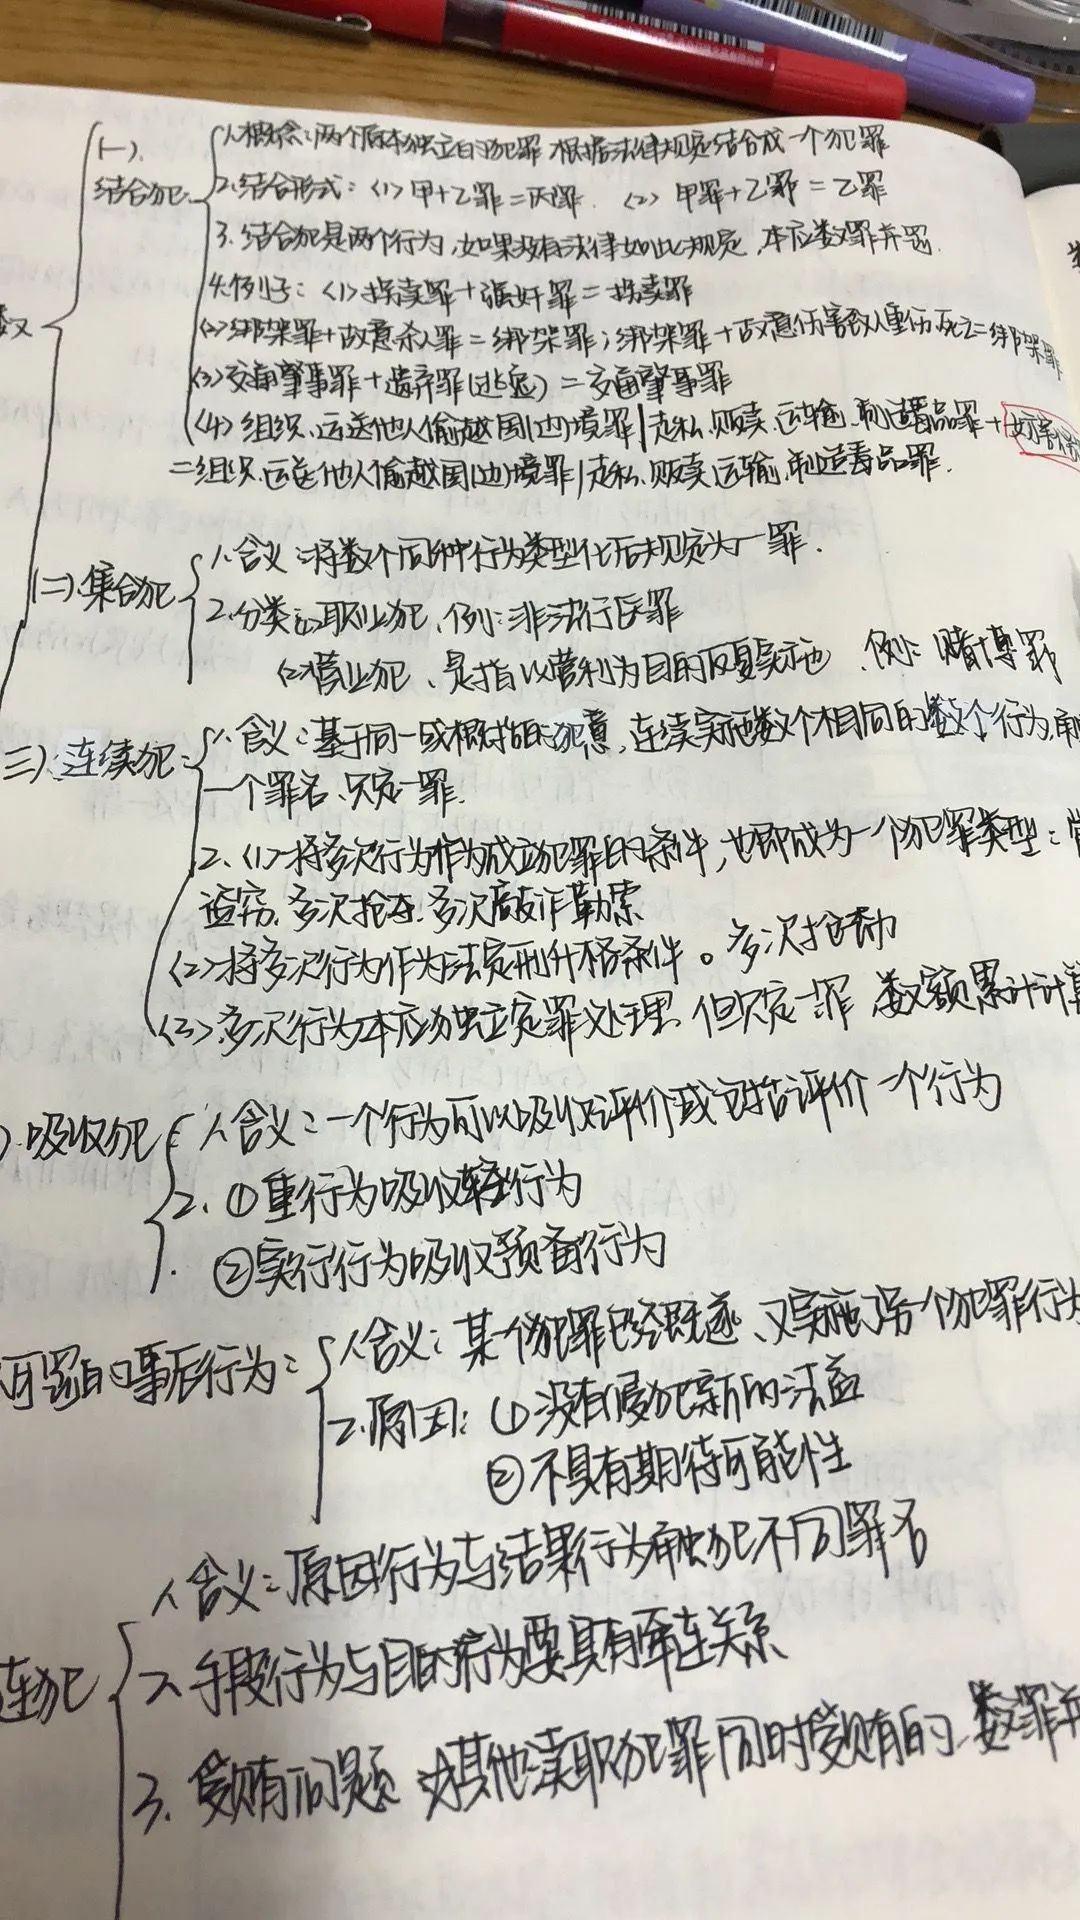 数
(一).
结合犯
1.概念:两个原本独立的犯罪 根据法律规定结合成一个犯罪
2.结合形式:<1>甲+乙罪=丙罪. <2> 甲罪+乙罪=乙罪
3.结合犯是两个行为,如果没有法律如此规定,本应数罪并罚.
4.例子:<1>拐卖罪+强奸罪=拐卖罪
<2>绑架罪+故意杀人罪=绑架罪;绑架罪+故意伤害致人重伤死亡=绑架罪
<3>交通肇事罪+遗弃罪(逃逸)=交通肇事罪
<4>组织、运送他人偷越国(边)境罪/走私、贩卖、运输、制造毒品罪+妨害
=组织、运送他人偷越国(边)境罪/走私、贩卖、运输、制造毒品罪.
(二).集合犯
1.含义:将数个同种行为类型化后规定为一罪.
2.分类<1>职业犯、例:非法行医罪
<2>营业犯、是指以营利为目的反复实施、例:赌博罪
三).连续犯:
1.含义:基于同一或概括的犯意,连续实施数个相同的数个行为,触
一个罪名、只定一罪.
2.<1>将多次行为作为成立犯罪的条件,也即成为一个犯罪类型:
盗窃、多次抢夺、多次敲诈勒索
<2>将多次行为作为法定刑升格条件。多次抢劫
<3>多次行为本应独立定罪处理,但只定一罪 数额累计计算
).吸收犯
1.含义:一个行为可以吸收评价或包括评价一个行为
2.①重行为吸收轻行为
②实行行为吸收预备行为
可罚的事后行为:
1.含义:某个犯罪已经既遂、又实施了另一个犯罪行为
2.原因:①没有侵犯新的法益
②不具有期待可能性
连犯
1.含义:原因行为与结果行为触犯不同罪名
2.手段行为与目的行为要具有牵连关系
3.受贿有问题 其他渎职犯罪同时受贿的、数罪并